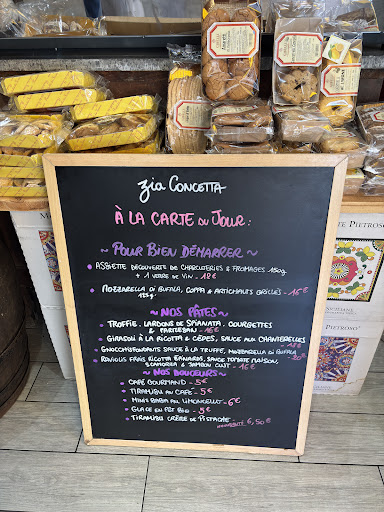 Zia Concetta
À LA CARTE DU JOUR :
~ POUR BIEN DÉMARRER ~
• ASSIETTE DÉCOUVERTE DE CHARCUTERIES & FROMAGES 150g
+ 1 VERRE DE VIN - 18€
• MOZZARELLA DI BUFALA, COPPA & ARTICHAUTS GRILLÉS - 16€
125g.
~ NOS PÂTES ~
• TROFFIE, LARDONS DE SPIANATA, COURGETTES
& PARMESAN - 16€
• GIRASOLI À LA RICOTTA & CÈPES, SAUCE AUX CHANTERELLES
• GNOCCHI FONDANTS SAUCE À LA TRUFFE, MOZZARELLA DI BUFALA
• RAVIOLIS FRAIS RICOTTA ÉPINARDS, SAUCE TOMATE MAISON,
SCAMORZA & JAMBON CUIT - 16€
~ NOS DOUCEURS ~
• CAFÉ GOURMAND - 5€
• TIRAMISU AU CAFÉ - 5€
• MINI BABA AU LIMONCELLO - 6€
• GLACE EN POT BIO - 5€
• TIRAMISU CRÈME DE PISTACHE - 6,50€
PIETROSO